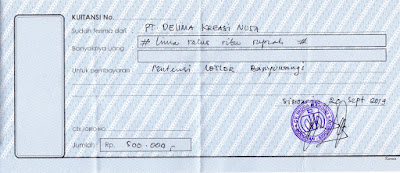 KUITANSI No.
Sudah terima dari : PT. DELIMA KREASI NUSA
Banyaknya uang : # lima ratus ribu rupiah #
Untuk pembayaran : Banyuwangi
20 Sept 2019
CEK/GIRO NO.
Jumlah Rp. 500.000,-